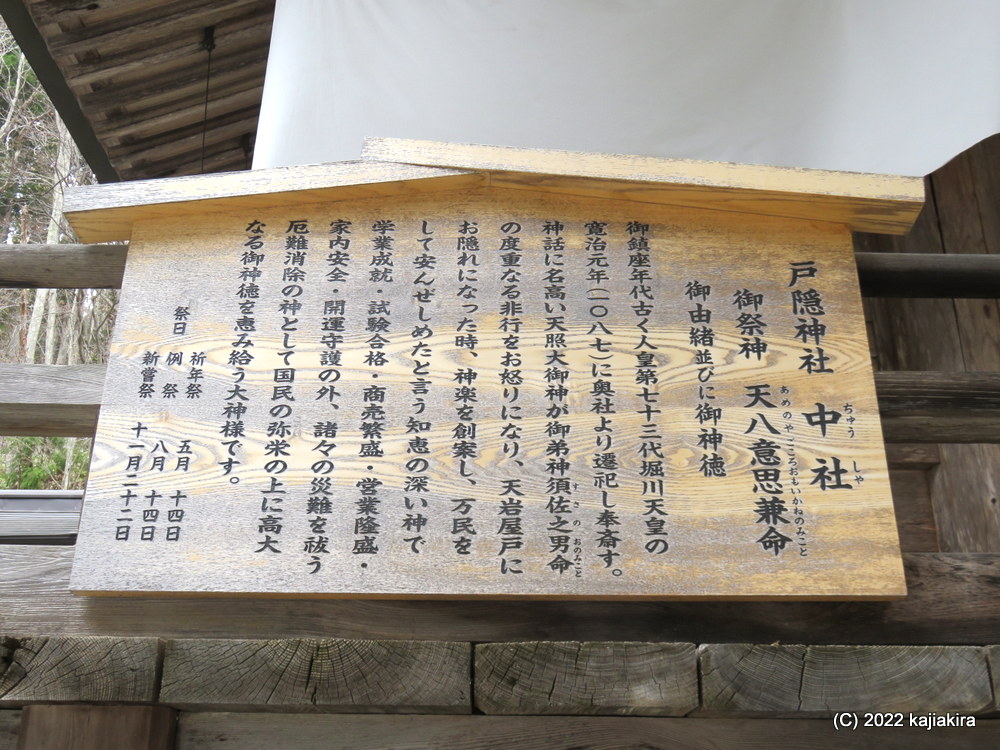 戸隠神社 中社
ちゅう しゃ
御祭神 天八意思兼命
あめのやごころおもいかねのみこと
御由緒並びに御神徳
御鎮座年代古く人皇第七十三代堀川天皇の
寛治元年(一〇八七)に奥社より遷祀し奉斎す。
神話に名高い天照大御神が御弟神須佐之男命
すさのおのみこと
の度重なる非行をお怒りになり、天岩屋戸に
お隠れになった時、神楽を創案し、万民を
して安んぜしめたと言う知恵の深い神で
学業成就・試験合格・商売繁盛・営業隆盛・
家内安全・開運守護の外、諸々の災難を祓う
厄難消除の神として国民の弥栄の上に高大
なる御神徳を恵み給う大神様です。
祈年祭 五月 十四日
祭日 例祭 八月 十四日
新嘗祭 十一月二十二日
(C) 2022 kajiakira